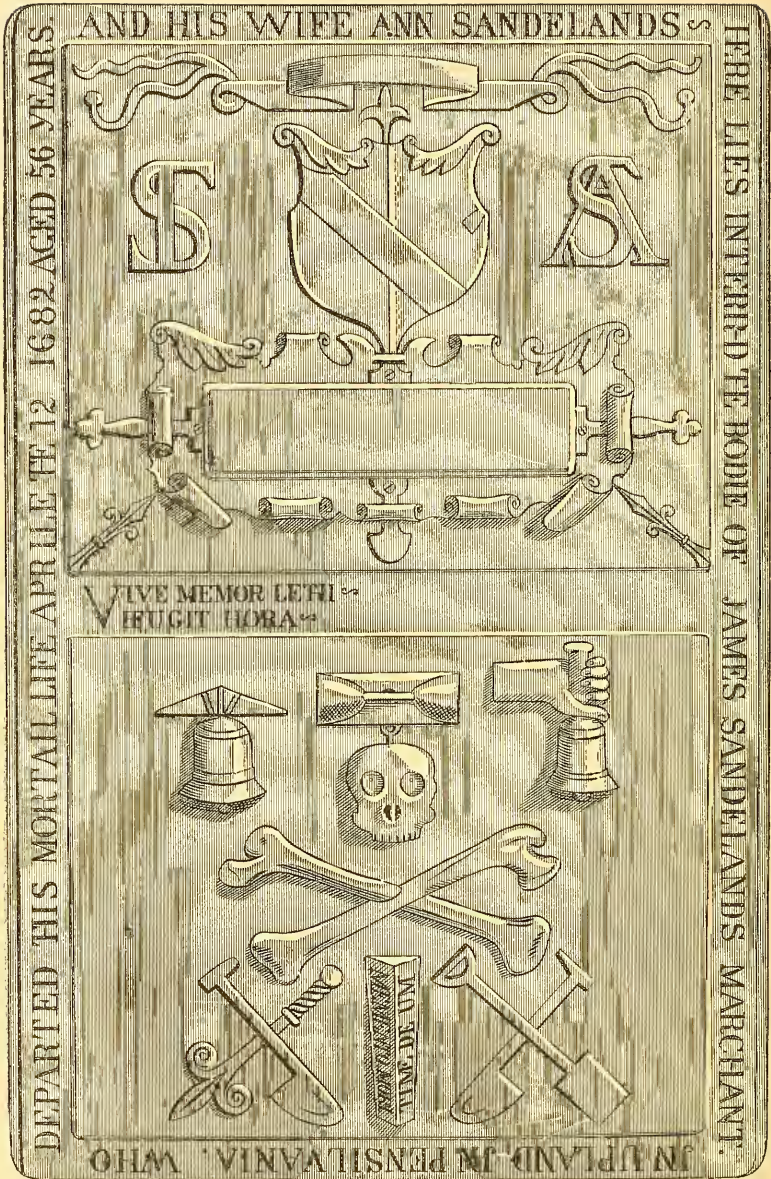 HERE LIES INTERED TE BODIE OF JAMES SANDELANDS MARCHANT.
IN UPLAND, IN PENSILVANIA. WHO
DEPARTED THIS MORTAIL LIFE APRILE TE 12 1682 AGED 56 YEARS.
AND HIS WIFE ANN SANDELANDS
IS
AS
VIVE MEMOR LETHI
FUGIT HORA
TIME, DE UM
MEMENTO MORI